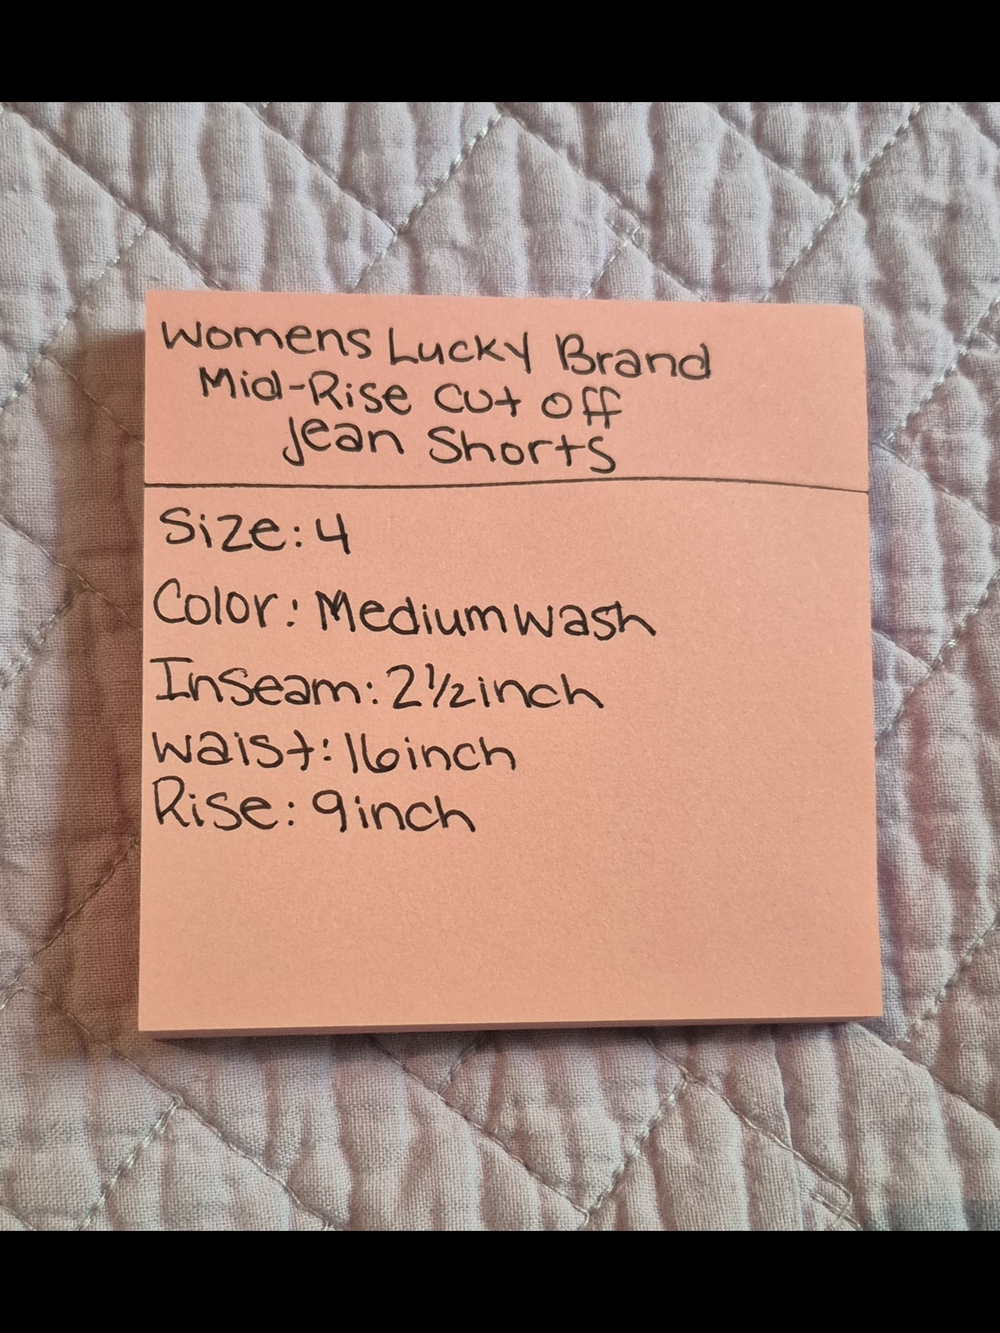 Womens Lucky Brand
Mid-Rise Cut Off
Jean Shorts
Size: 4
Color: Medium Wash
Inseam: 2½ inch
Waist: 16 inch
Rise: 9 inch